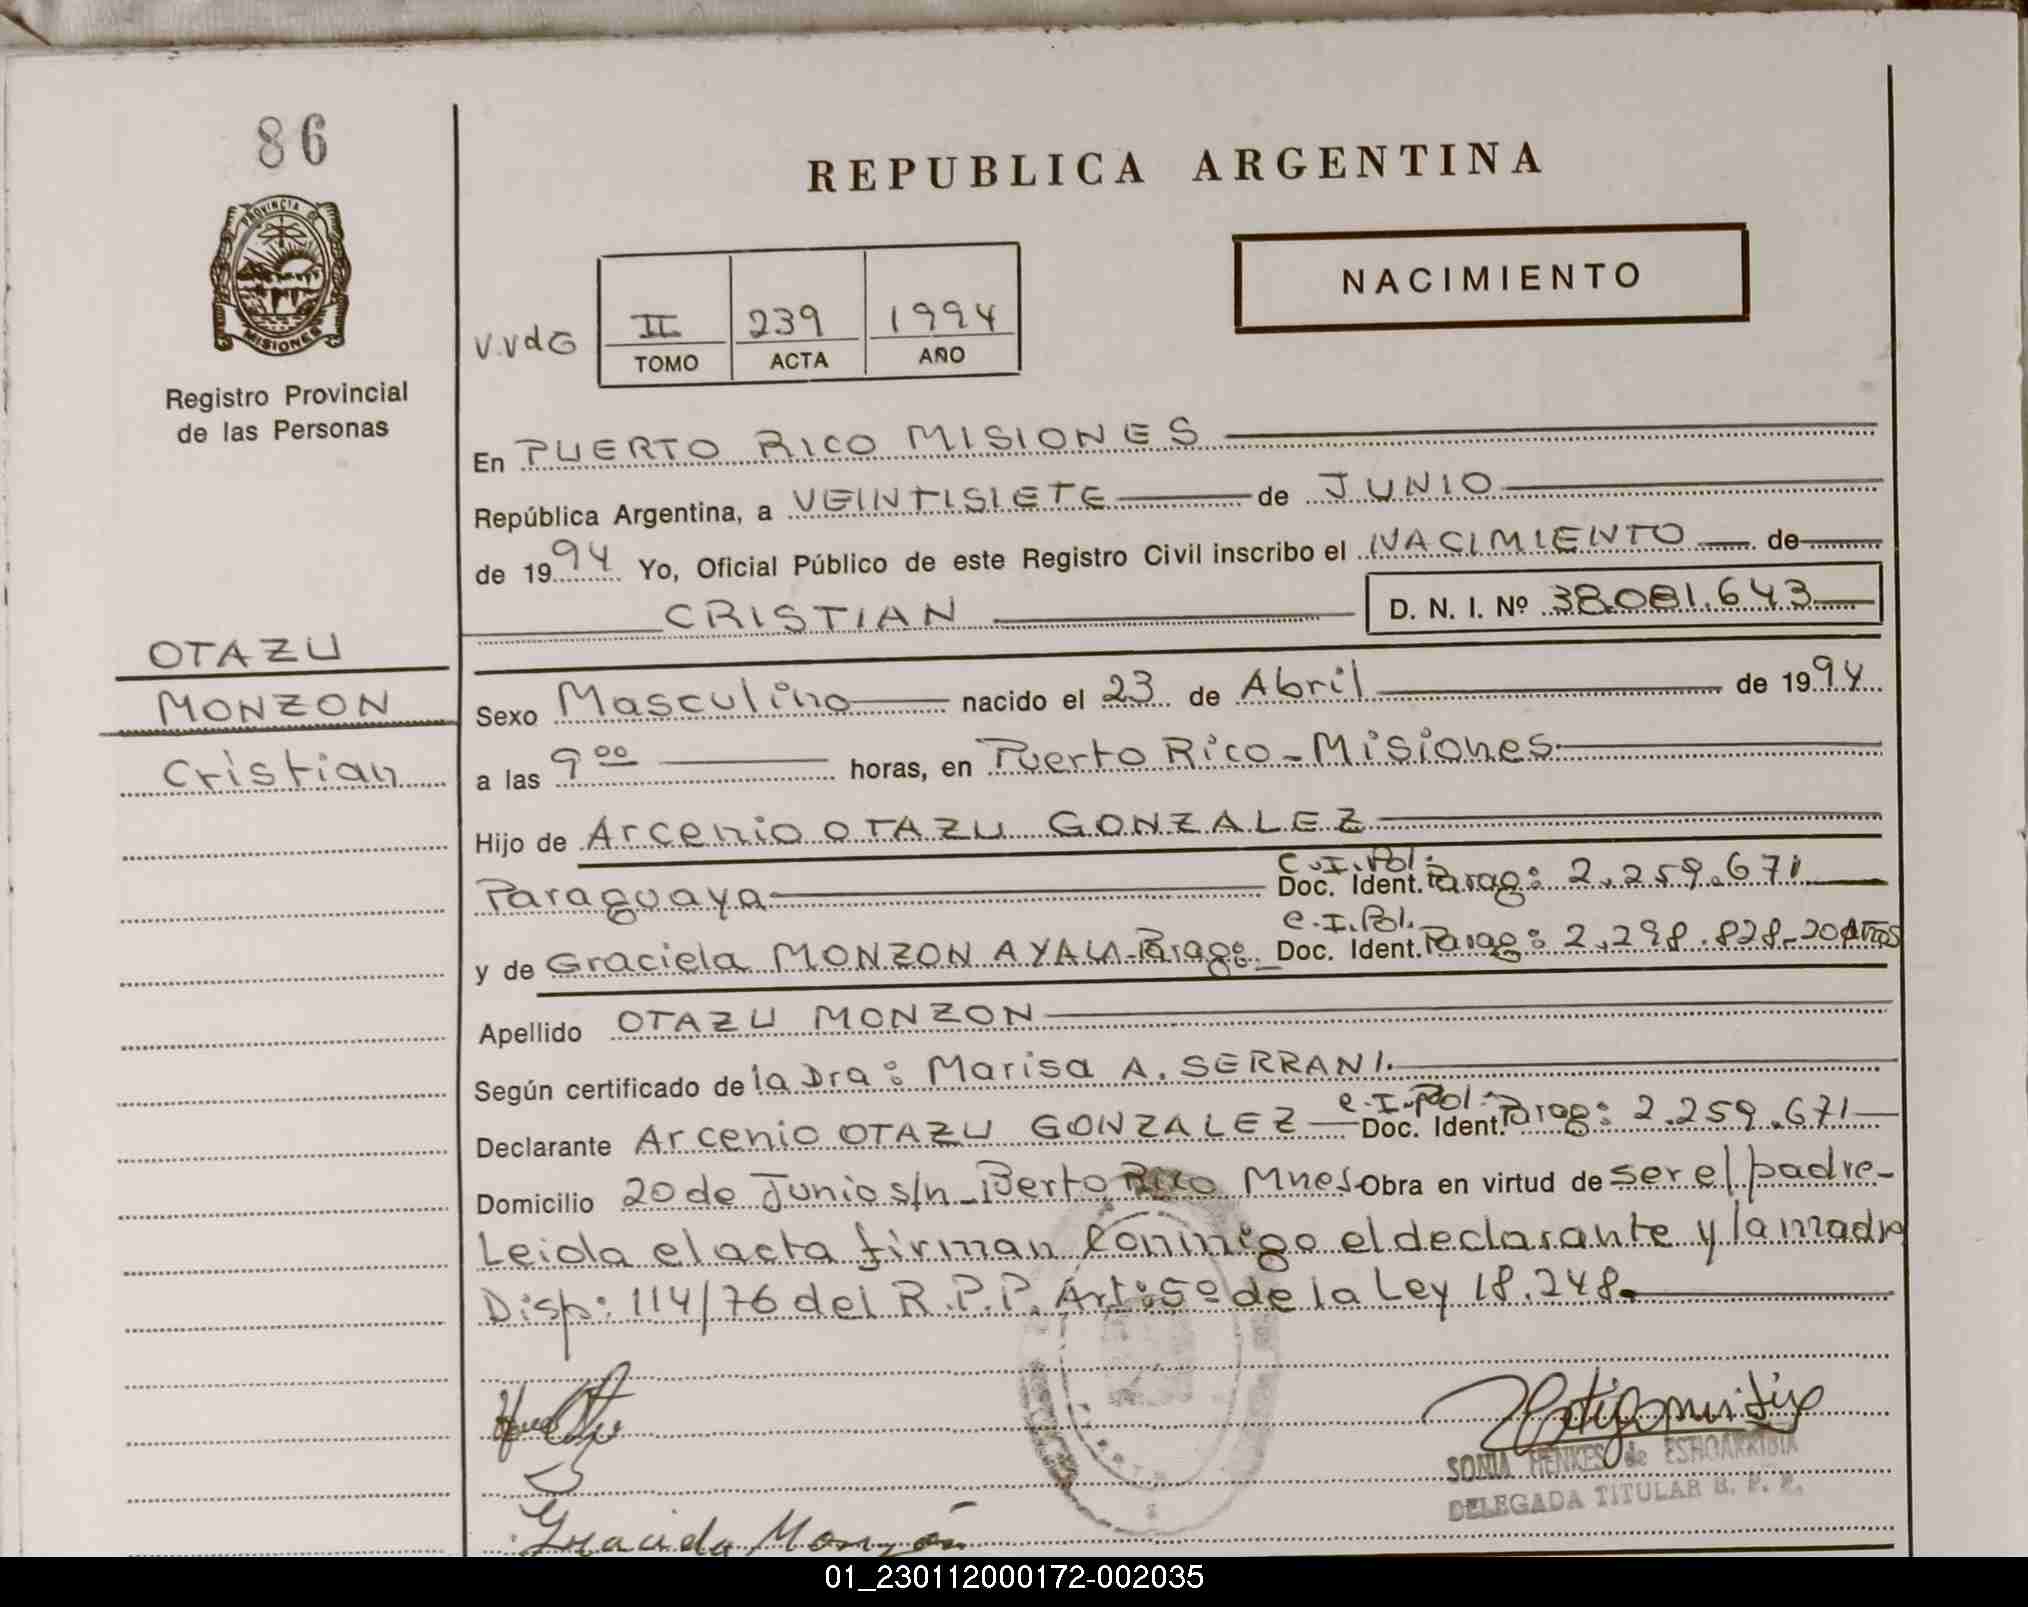 86
REPUBLICA ARGENTINA
PROVINCIA DE
MISIONES
Registro Provincial
de las Personas
NACIMIENTO
V.VdG
II 239 1994
TOMO ACTA AÑO
En PUERTO RICO MISIONES
República Argentina, a VEINTISIETE de JUNIO
de 1994 Yo, Oficial Público de este Registro Civil inscribo el NACIMIENTO de
CRISTIAN D. N. I. Nº 38.081.643
OTAZU
MONZON
Cristian
Sexo Masculino nacido el 23 de Abril de 1994
a las 9 00 horas, en Puerto Rico - Misiones
Hijo de Arcenio OTAZU GONZALEZ
C.I.Pol.
Paraguaya Doc. Ident. Parag: 2.259.671
C.I.Pol.
y de Graciela MONZON AYALA-Parag: Doc. Ident. Parag: 2.298.828-20 AÑOS
Apellido OTAZU MONZON
Según certificado de la Dra: Marisa A. SERRANI.
C.I.Pol.
Declarante Arcenio OTAZU GONZALEZ Doc. Ident. Parag: 2.259.671
Domicilio 20 de Junio s/n - Puerto Rico Mnes Obra en virtud de ser el padre-
Leida el acta firman Conmigo el declarante y la madre
Disp: 114/76 del R.P.P. Art: 5º de la Ley 18.248.
SONIA HENKES de
DELEGADA TITULAR R. P. P.
Graciela Monzón
01_230112000172-002035